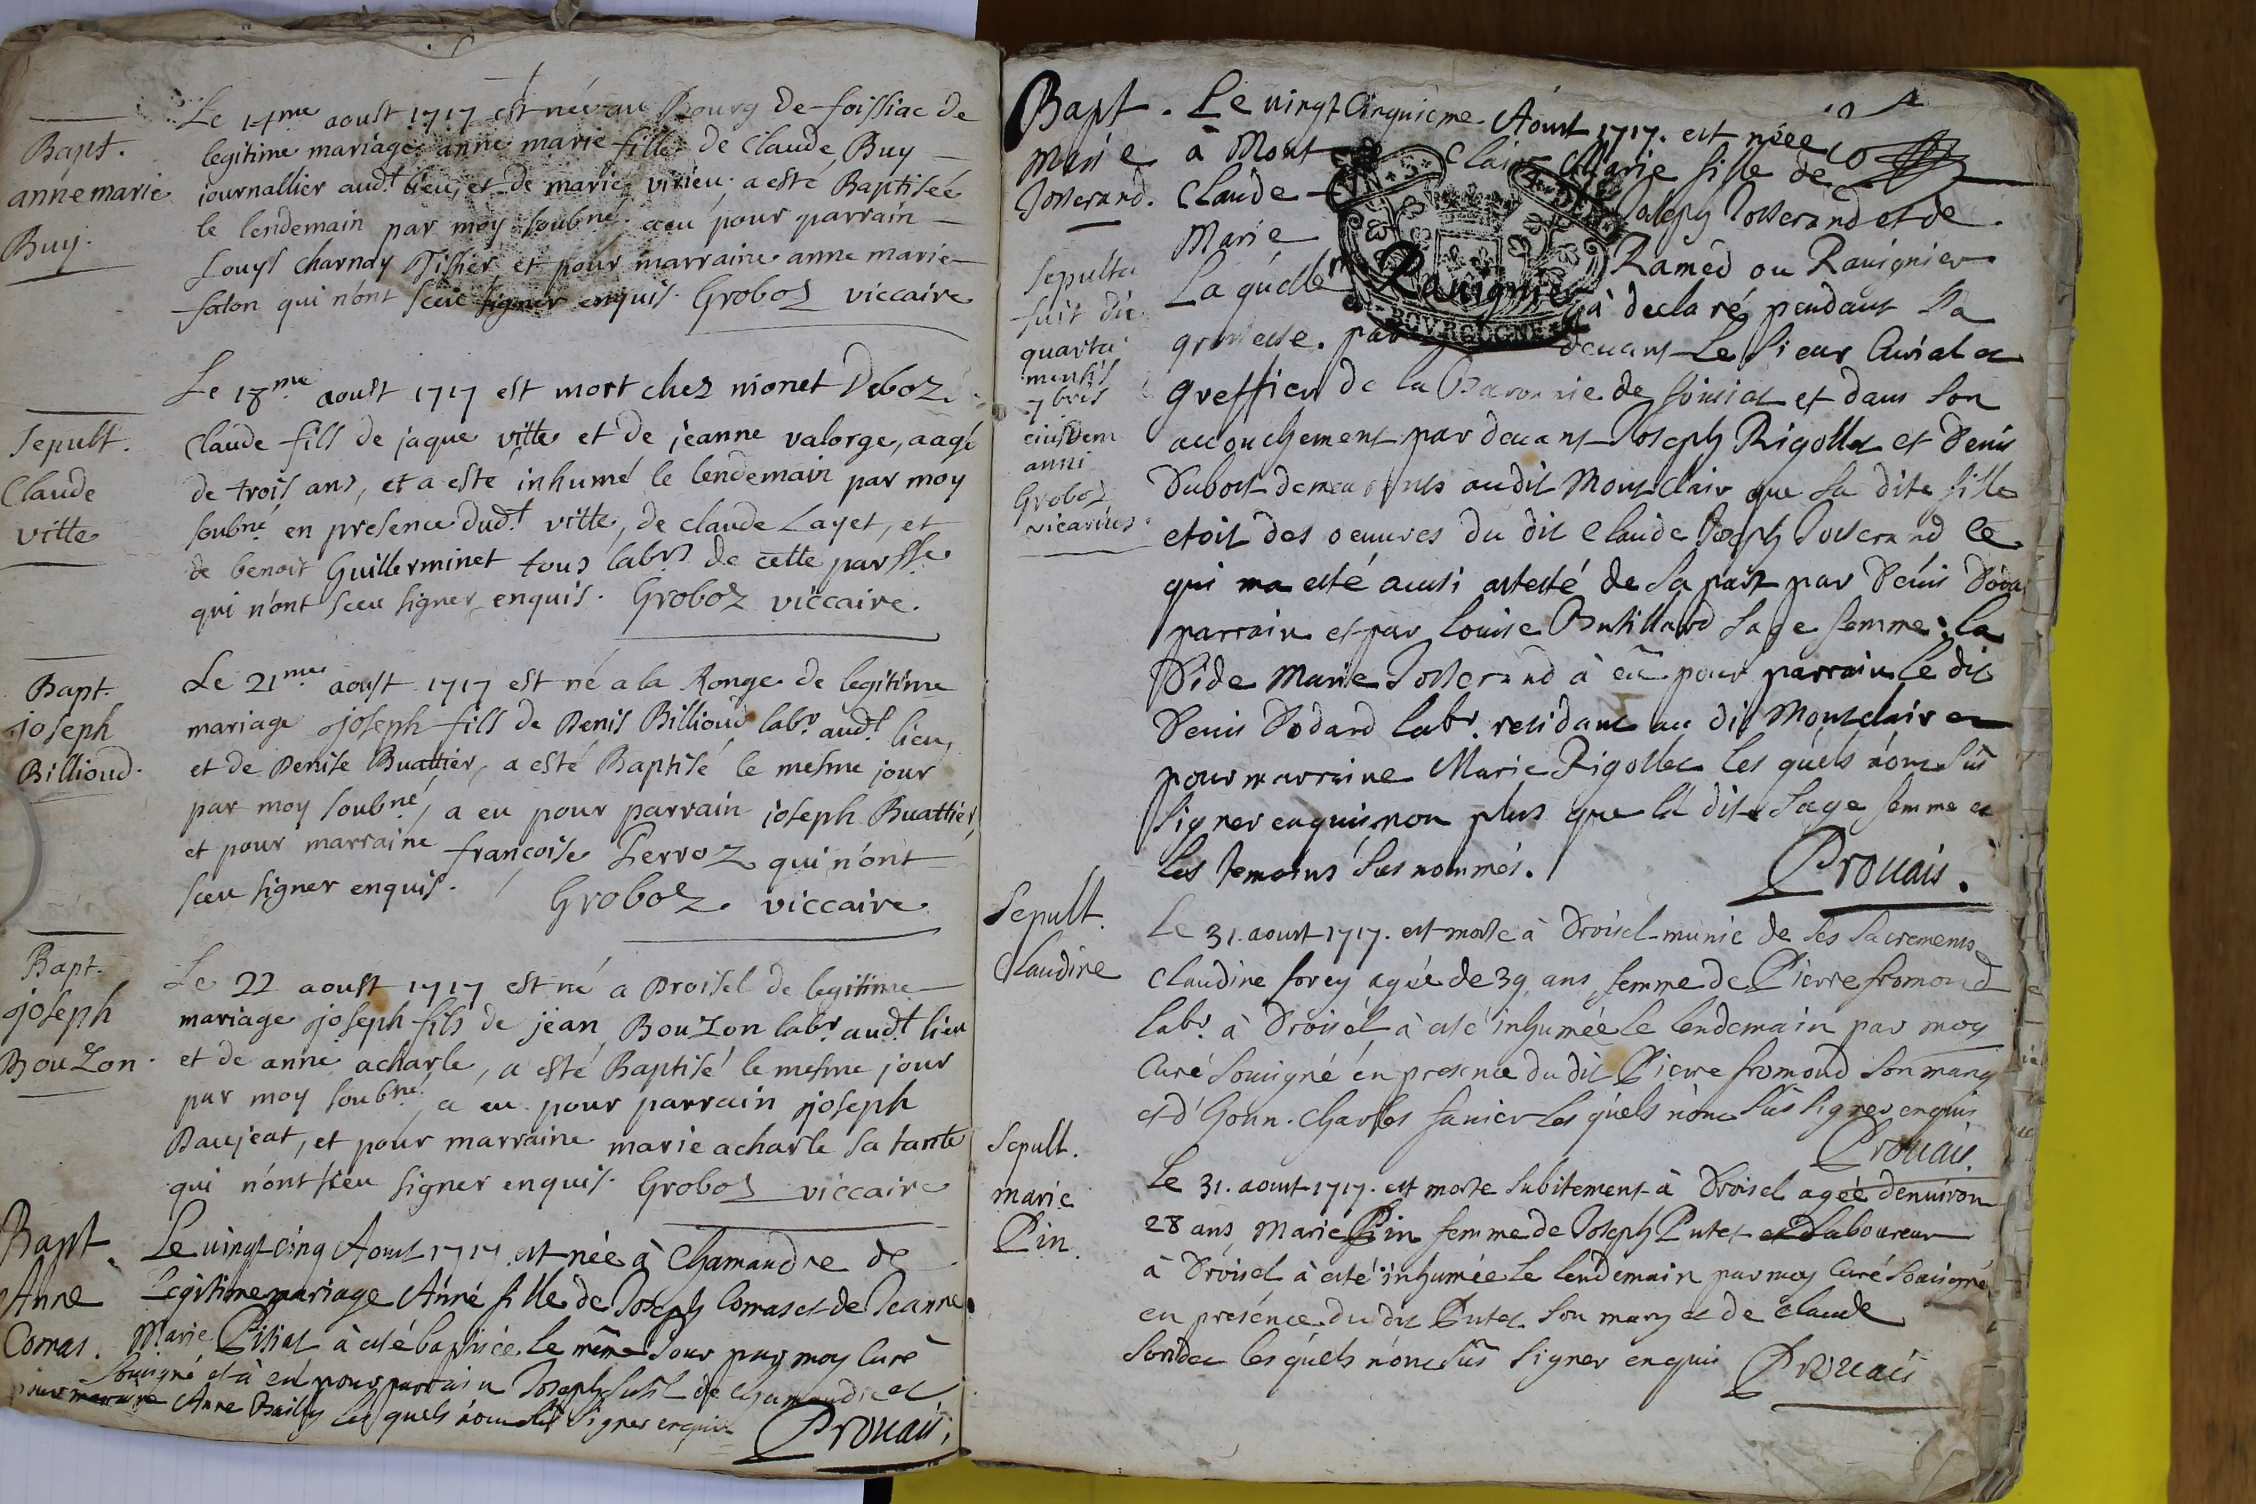 Bapt.
anne marie
Buy.
Le 14me aoust 1717 est née au Bourg de foissiac de
legitime mariage anne marie fille de Claude Buy
journallier audt lieu, et de marie virieu a esté Baptiseé
le lendemain par moy soubné. a eu pour parrain
Louys charnay Tissier et pour marraine anne marie
falon qui n'ont sceu signer enquis. Groboz viccaire
Sepult.
Claude
vitte
Le 18me aoust 1717 est mort chez nionet Deboz
Claude fils de jaque vitte et de jeanne valorge, aagé
de trois ans, et a este inhumé le lendemain par moy
soubné en presence dudt vitte, de claude Layet, et
de benoit Guillerminet tous labrs de cette parsse
qui n'ont sceu signer enquis. Groboz viccaire.
Bapt.
joseph
Billioud.
Le 21me aoust 1717 est né a la Ronge de legitime
mariage joseph fils de Denis Billioud labr audt lieu,
et de Denise Buattier, a esté Baptisé le mesme jour
par moy soubné, a eu pour parrain joseph Buattier,
et pour marraine françoise Perroz qui n'ont
sceu signer enquis. Groboz viccaire
Bapt.
joseph
Bouzon.
Le 22 aoust 1717 est né a Droisel de legitime
mariage joseph fils de jean Bouzon labr audt lieu
et de anne acharle, a esté Baptisé le mesme jour
par moy soubné, a eu pour parrain joseph
Baujeat, et pour marraine marie acharle sa tante
qui n'ont sceu signer enquis. Groboz viccaire
Bapt
Anne
Comas.
Le vingt cinq Aoust 1717 est née à Chamandre de
Legitime mariage Anné fille de Joseph Comas et de Jeanne
Marie Pisiat à esté baptisée le même Jour par moy Curé
Souigné et à eü pour parrain Joseph de Chamandre et
pour maraine Anne Bailly les quels n'ont sçü signer enquis Prouais.
Bapt.
Marie
Josserand.
Le vingt Cinquième Aoust 1717. est néee
à Mont Clair Marie fille de
Claude Joseph Josserand et de
Marie Ravignier Ramed ou Ravignier
Laquelle à declaré pendant Sa
BOURGOGNE
grossesse. par devant Le Sieur Curial et
greffier de la Baronnie de foissiat et dans Son
accouchement par devant Joseph Rigollet et Denis
Dubost demeurants audit Montclair que Sa dite fille
etoit des oeuvres du dit Claude Joseph Josserand ce
qui ma esté aussi attesté de Sa part par Denis
parrain et par Louise Sage femme: la
Dide Marie Josserand à eü pour parrain le dit
Denis Dodard labr. residant au dit Montclair et
pour marraine Marie Rigollet les quels n'ont sçü
Signer enquis non plus que la dite Sage femme et
les temoins Sus nommés. Prouais.
Sepulta
fuit die
quarta
mensis
7bris
eiusdem
anni
Groboz
vicarius.
Sepult.
Claudine
Le 31. aoust 1717. est morte à Droisel munie de Ses Sacrements
Claudine forey agée de 39 ans femme de Pierre fromond
labr à Droisel à esté inhumée le lendemain par moy
Curé Souigné en presence du dit Pierre fromond Son mary
et d'honn. Charles Les quels n'ont Sçüs Signer enquis
Prouais
Sepult.
marie
Pin.
Le 31. aoust 1717. est morte Subitement à Droisel agée denuiron
28 ans Marie Pin femme de Joseph Putet Laboureur
à Droisel à esté inhumée le lendemain par moy Curé Souigné
en presence du dit Putet Son mary et de Claude
les quels n'ont sçü Signer enquis Prouais